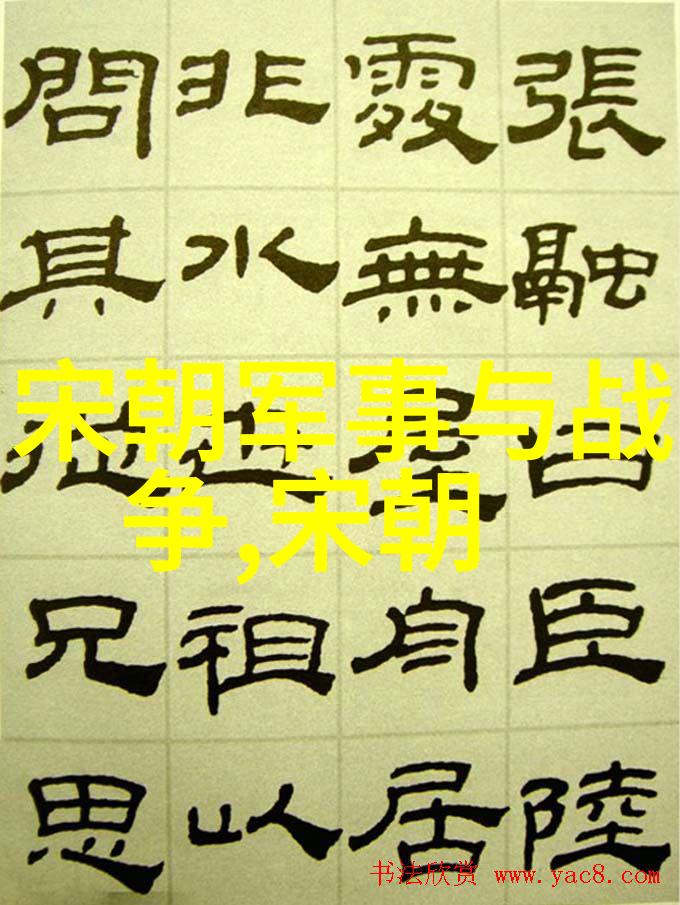 張融曰臣陸
處無屋舟居
非水世祖以
問其從兄思
宋朝军事与战
争,宋朝
书法欣赏 www.yac8.com